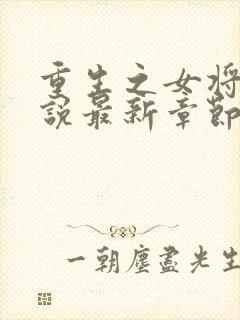 重生之女将
说最新章節
一朝塵盡先生